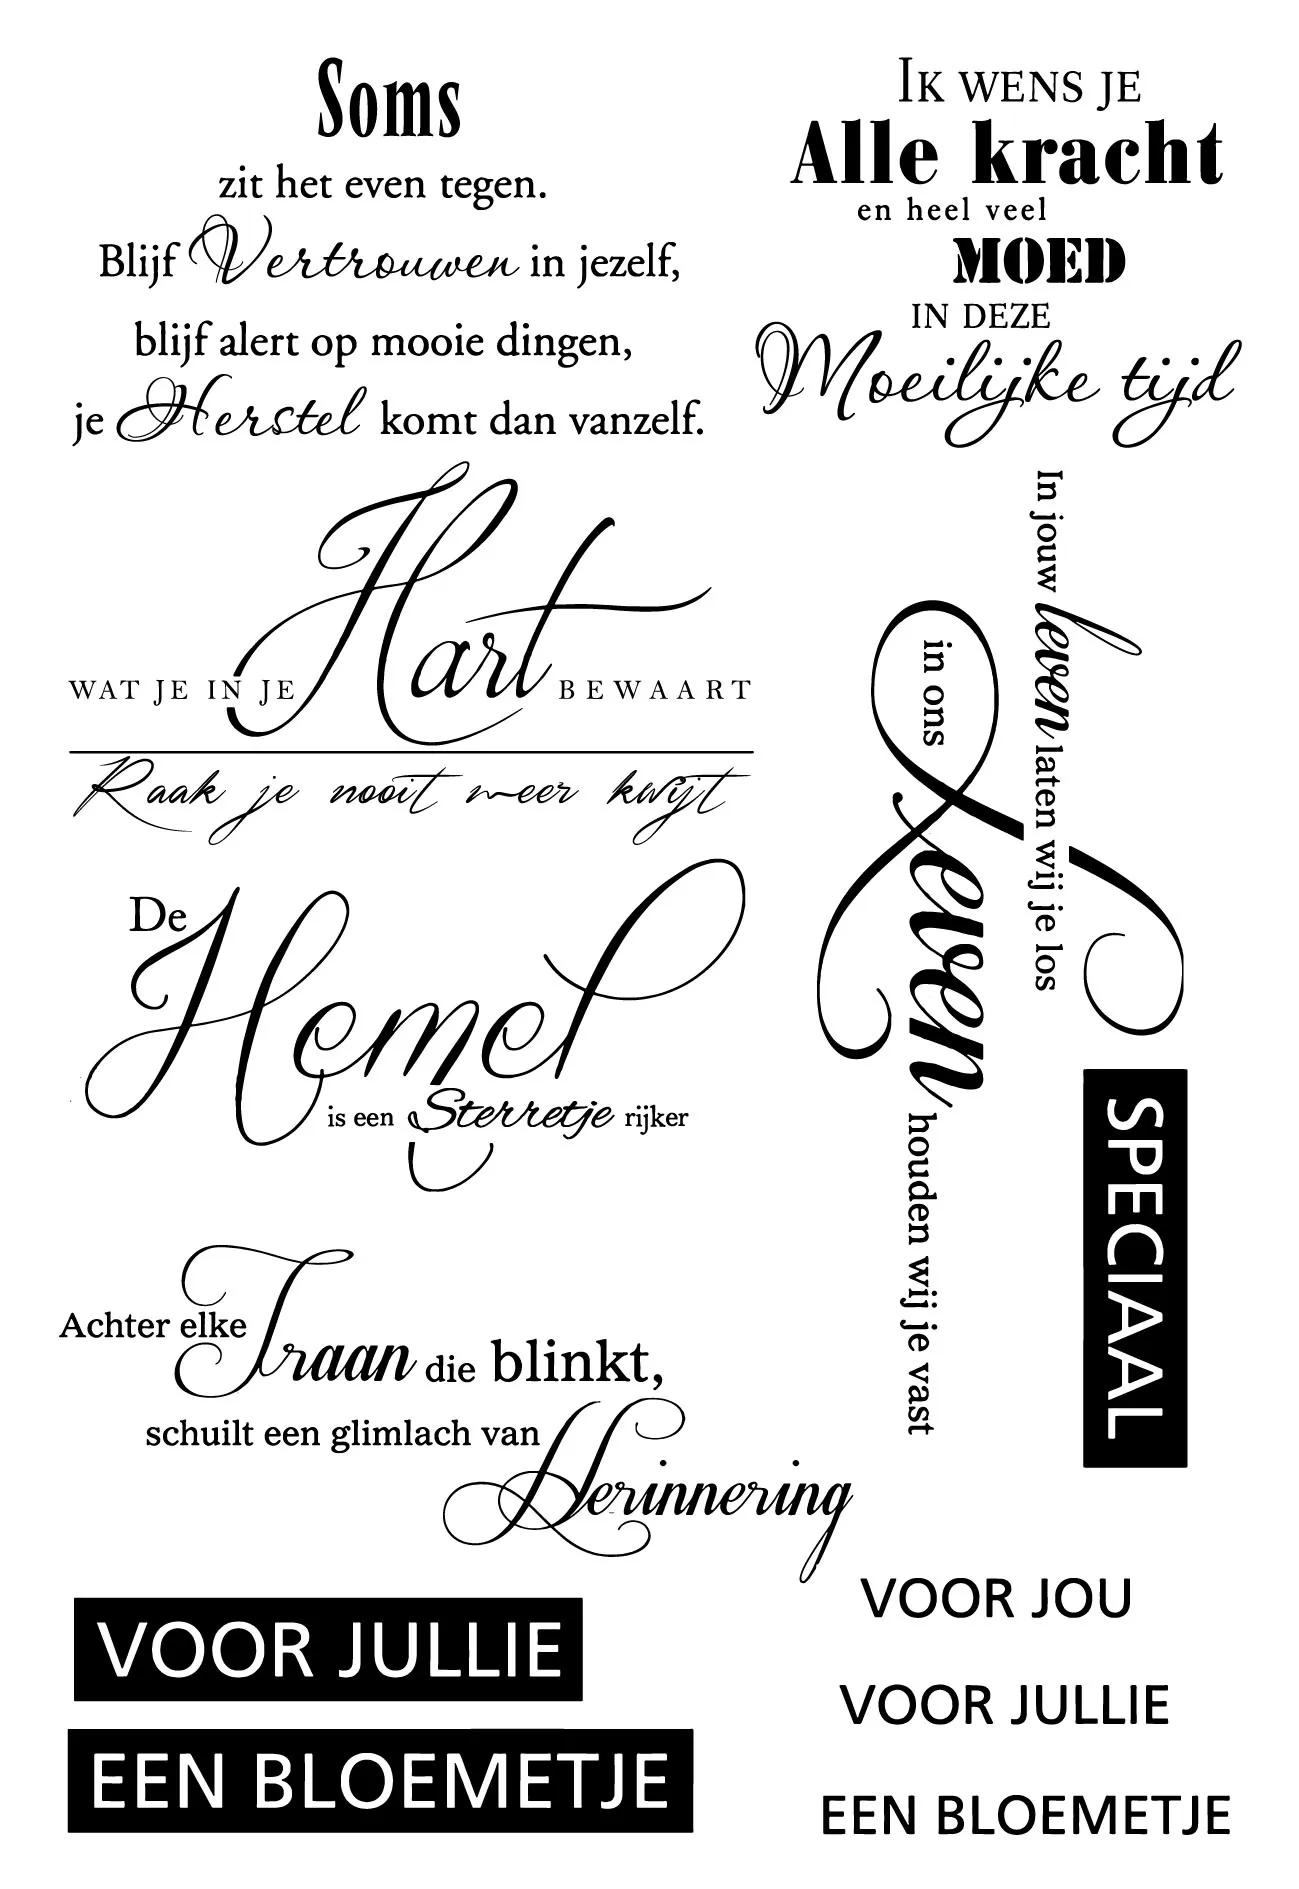 Soms
zit het even tegen.
Blijf Vertrouwen in jezelf,
blijf alert op mooie dingen,
je Herstel komt dan vanzelf.
IK WENS JE
Alle kracht
en heel veel
MOED
IN DEZE
Moeilijke tijd
WAT JE IN JE Hart BEWAART
Raak je nooit meer kwijt
In jouw leven laten wij je los
in ons
Leven houden wij je vast
De
Hemel
is een Sterretje rijker
SPECIAAL
Achter elke Traan die blinkt,
schuilt een glimlach van
Herinnering
VOOR JULLIE
EEN BLOEMETJE
VOOR JOU
VOOR JULLIE
EEN BLOEMETJE